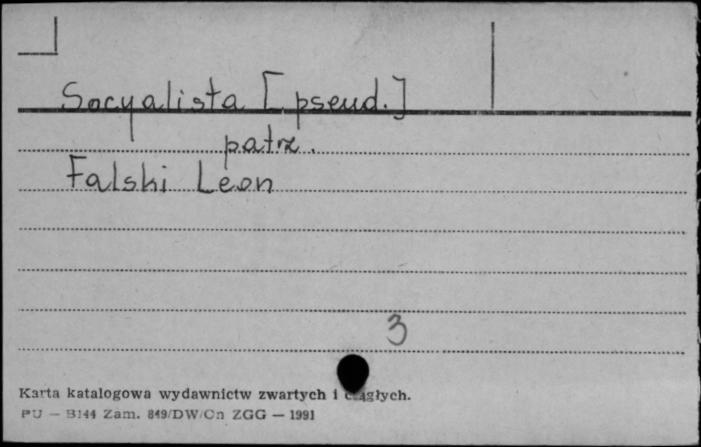 Socyalista [pseud.]
patrz.
Falski Leon
3
Karta katalogowa wydawnictw zwartych i ciągłych.
PU — B144 Zam. 849/DW/Cn ZGG — 1991